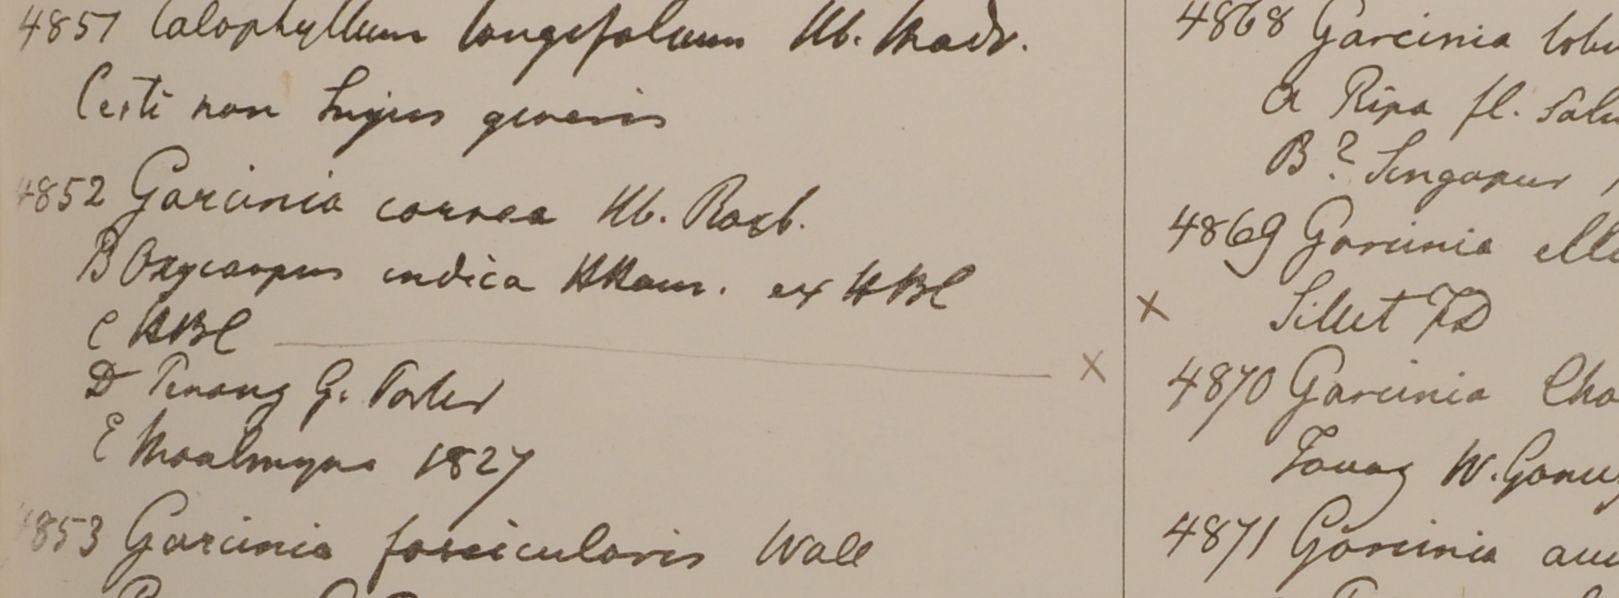 4851 Calophyllum longifolium Hb. Madr.
Certi non hujus generis
4852 Garcinia cornea Hb. Roxb.
B Oxycarpus indica HHam. ex HBC
C HBC
D Penang G. Porter
E Moalmyne 1827
4853 Garcinia fascicularis Wall
4868 Garcinia lobu
A Ripa fl. Salu
B? Singapur
4869 Garcinia elli
× Sillet FD
×
4870 Garcinia Cho
Tavoy W. Gomez
4871 Garcinia